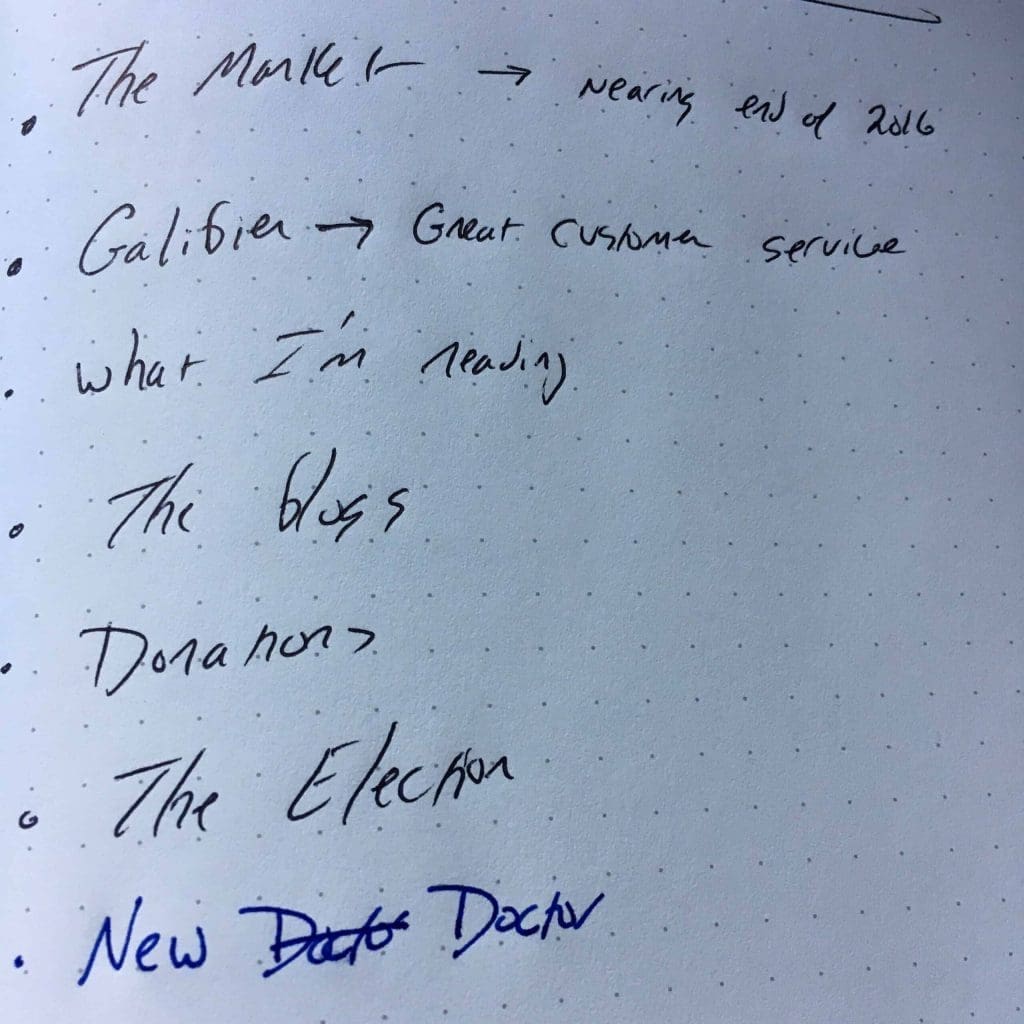 • The Market → Nearing end of 2016
• Galibier → Great customer service
• What I'm reading
• The blogs
• Donations
• The Election
• New Docto Doctor